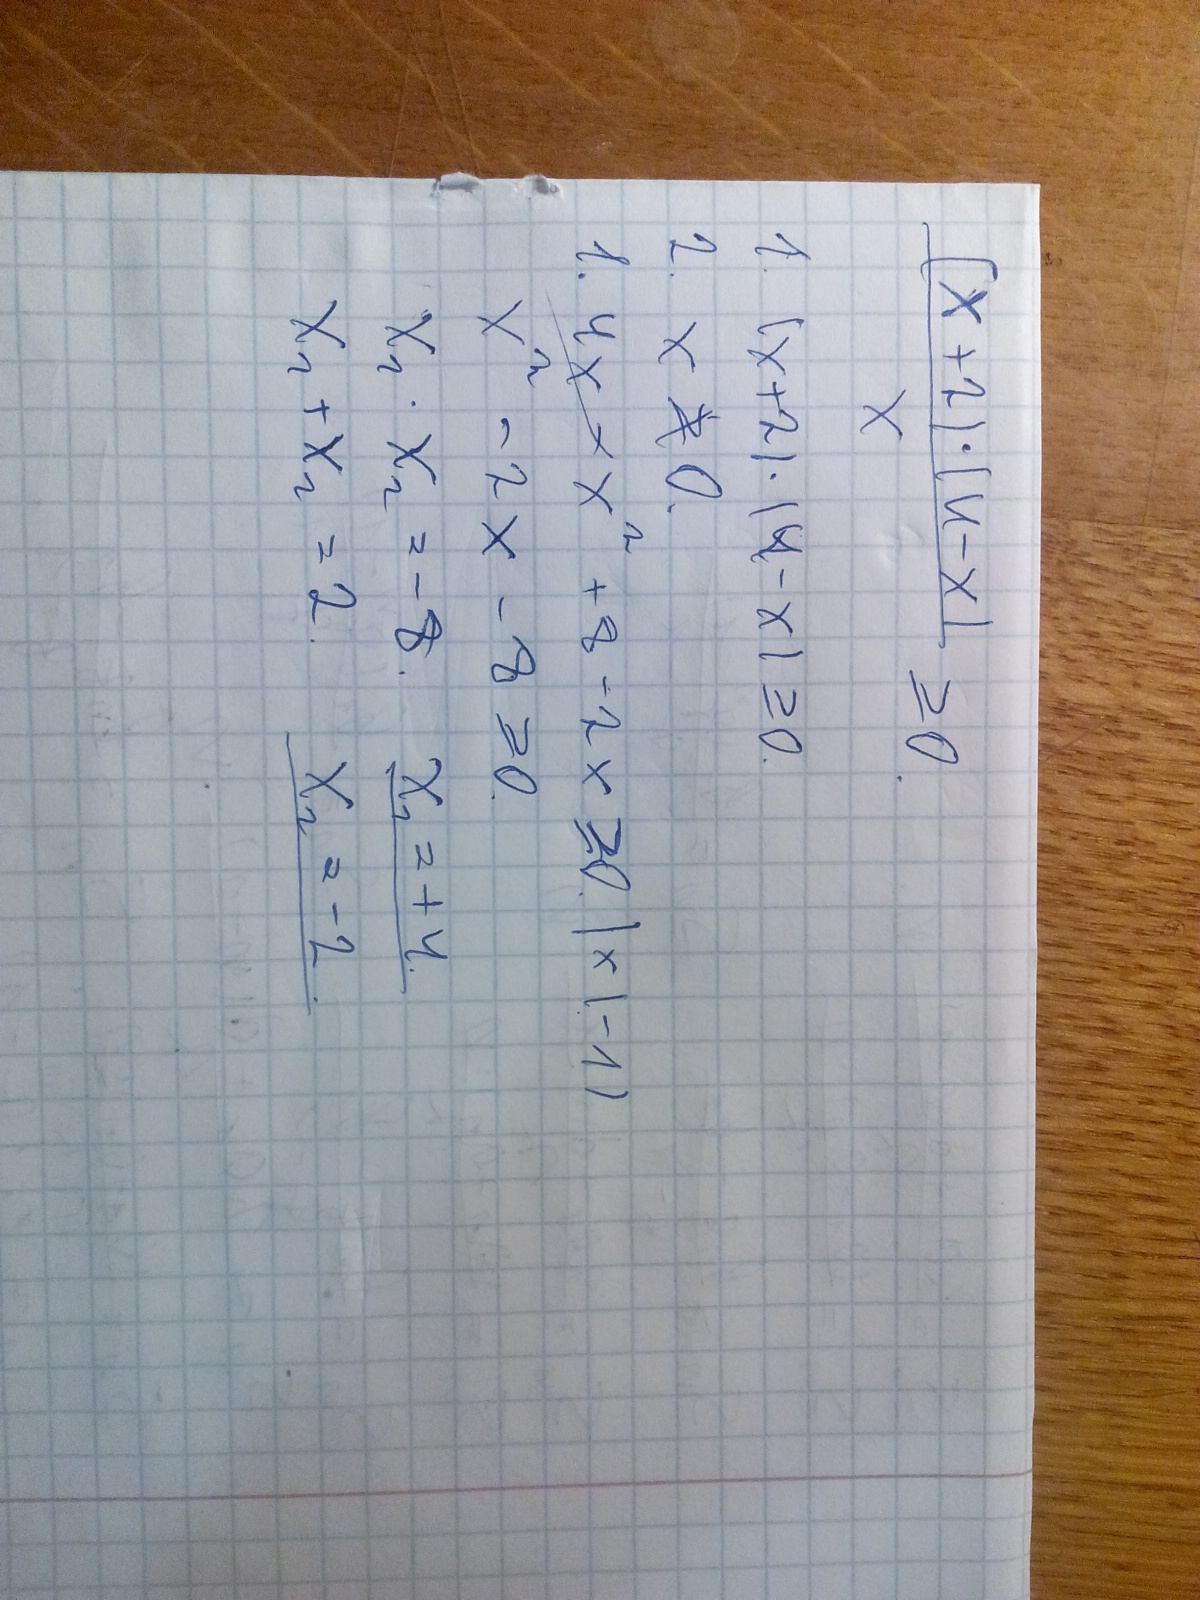 (x+2)·(4-x)
x
≥0.
1. (x+2)·(4-x)≥0.
2. x≠0.
1. 4x-x²+8-2x≥0. |x(-1)
x²-2x-8≥0.
x₁·x₂=-8. x₁=+4.
x₁+x₂=2. x₂=-2.